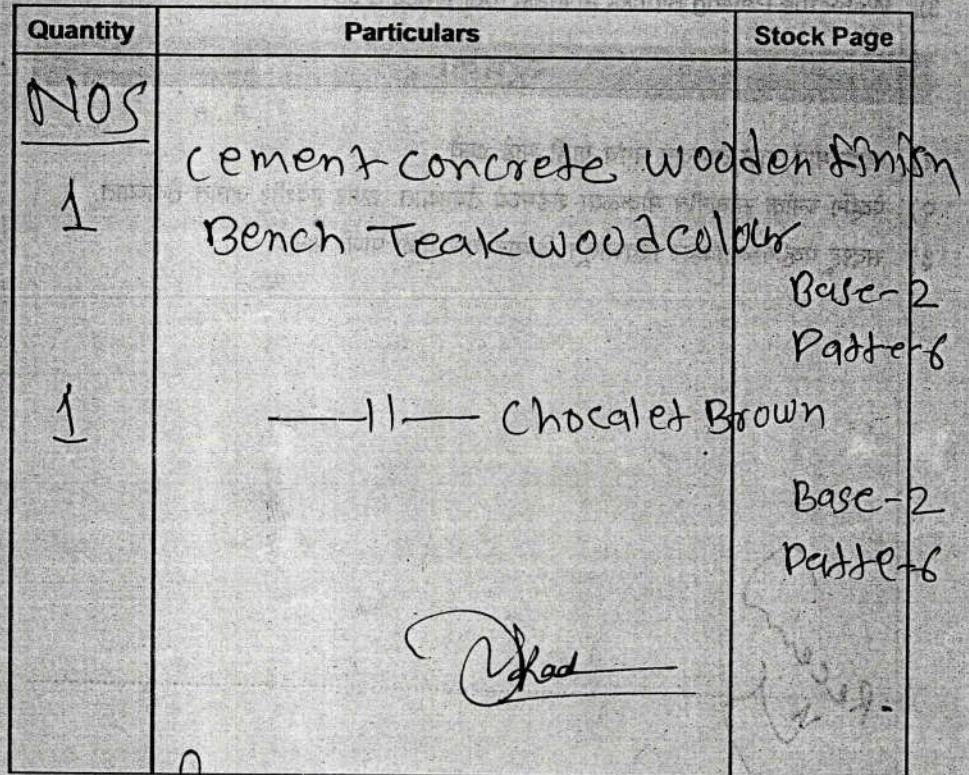 Quantity Particulars Stock Page
NOS
1 cement concrete wooden finish
Bench Teak wood colour
Base-2
Patte-6
1 —〃— Chocalet Brown
Base-2
Patte-6